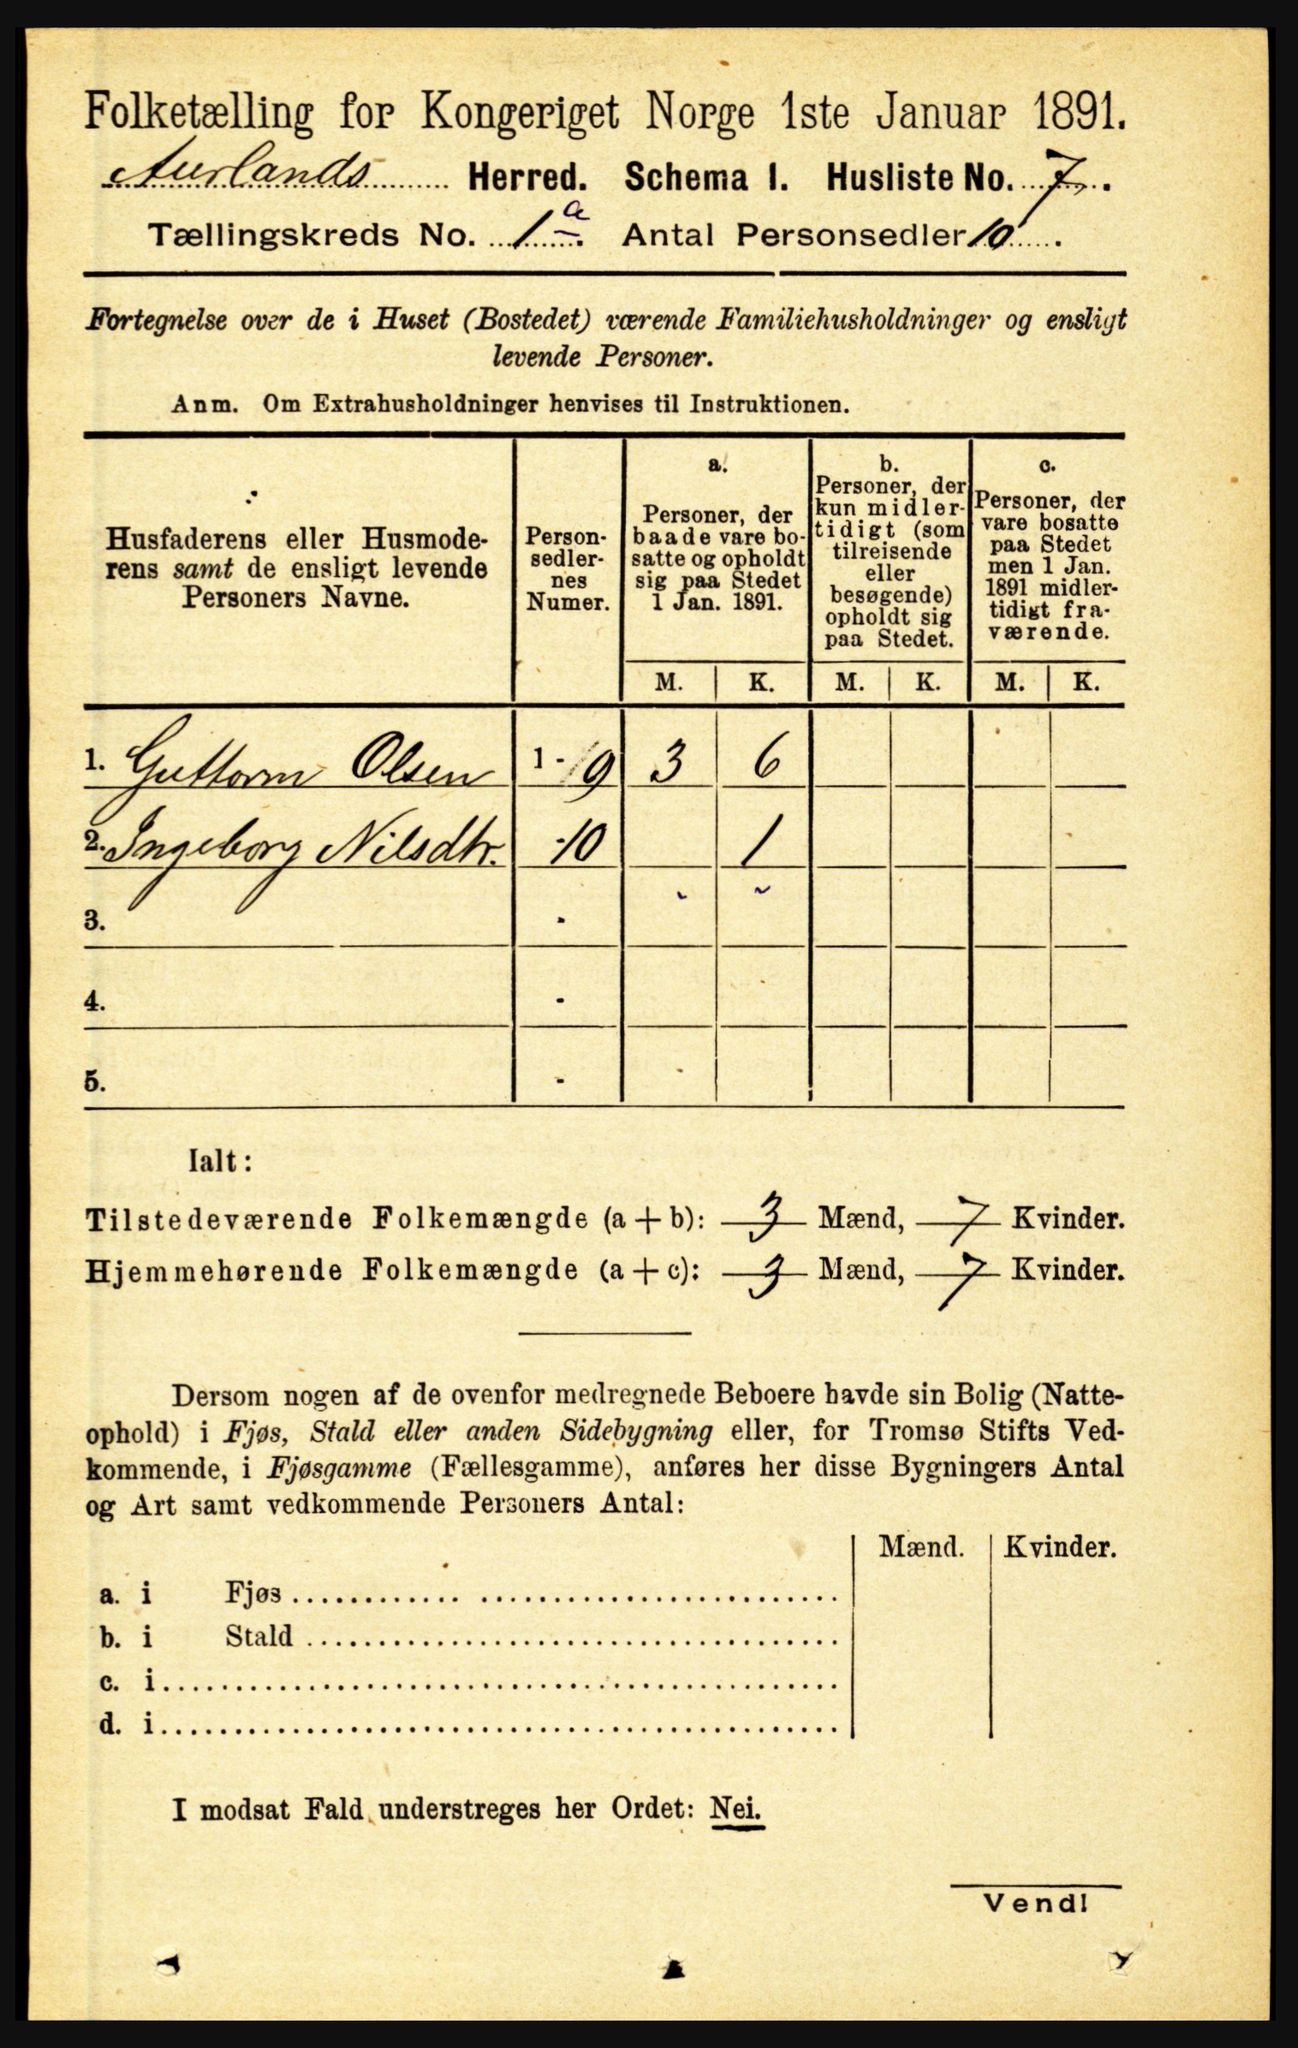 Folketælling for Kongeriget Norge 1ste Januar 1891.
Aurlands Herred. Schema I. Husliste No. 7.
Tællingskreds No. 1a. Antal Personsedler 10.
Fortegnelse over de i Huset (Bostedet) værende Familiehusholdninger og ensligt
levende Personer.
Anm. Om Extrahusholdninger henvises til Instruktionen.
Husfaderens eller Husmode-
rens samt de ensligt levende
Personers Navne.
Person-
sedler-
nes
Numer.
a.
Personer, der
baade vare bo-
satte og opholdt
sig paa Stedet
1 Jan. 1891.
b.
Personer, der
kun midler-
tidigt (som
tilreisende
eller
besøgende)
opholdt sig
paa Stedet.
c.
Personer, der
vare bosatte
paa Stedet
men 1 Jan.
1891 midler-
tidigt fra-
værende.
M. K. M. K. M. K.
1. Guttorm Olsen 1 - 9 3 6
2. Ingeborg Nilsdtr. - 10 1
3. -
4. -
5. -
Ialt:
Tilstedeværende Folkemængde (a + b): 3 Mænd, 7 Kvinder.
Hjemmehørende Folkemængde (a + c): 3 Mænd, 7 Kvinder.
Dersom nogen af de ovenfor medregnede Beboere havde sin Bolig (Natte-
ophold) i Fjøs, Stald eller anden Sidebygning eller, for Tromsø Stifts Ved-
kommende, i Fjøsgamme (Fællesgamme), anføres her disse Bygningers Antal
og Art samt vedkommende Personers Antal:
Mænd. Kvinder.
a. i Fjøs
b. i Stald
c. i
d. i
I modsat Fald understreges her Ordet: Nei.
Vendl